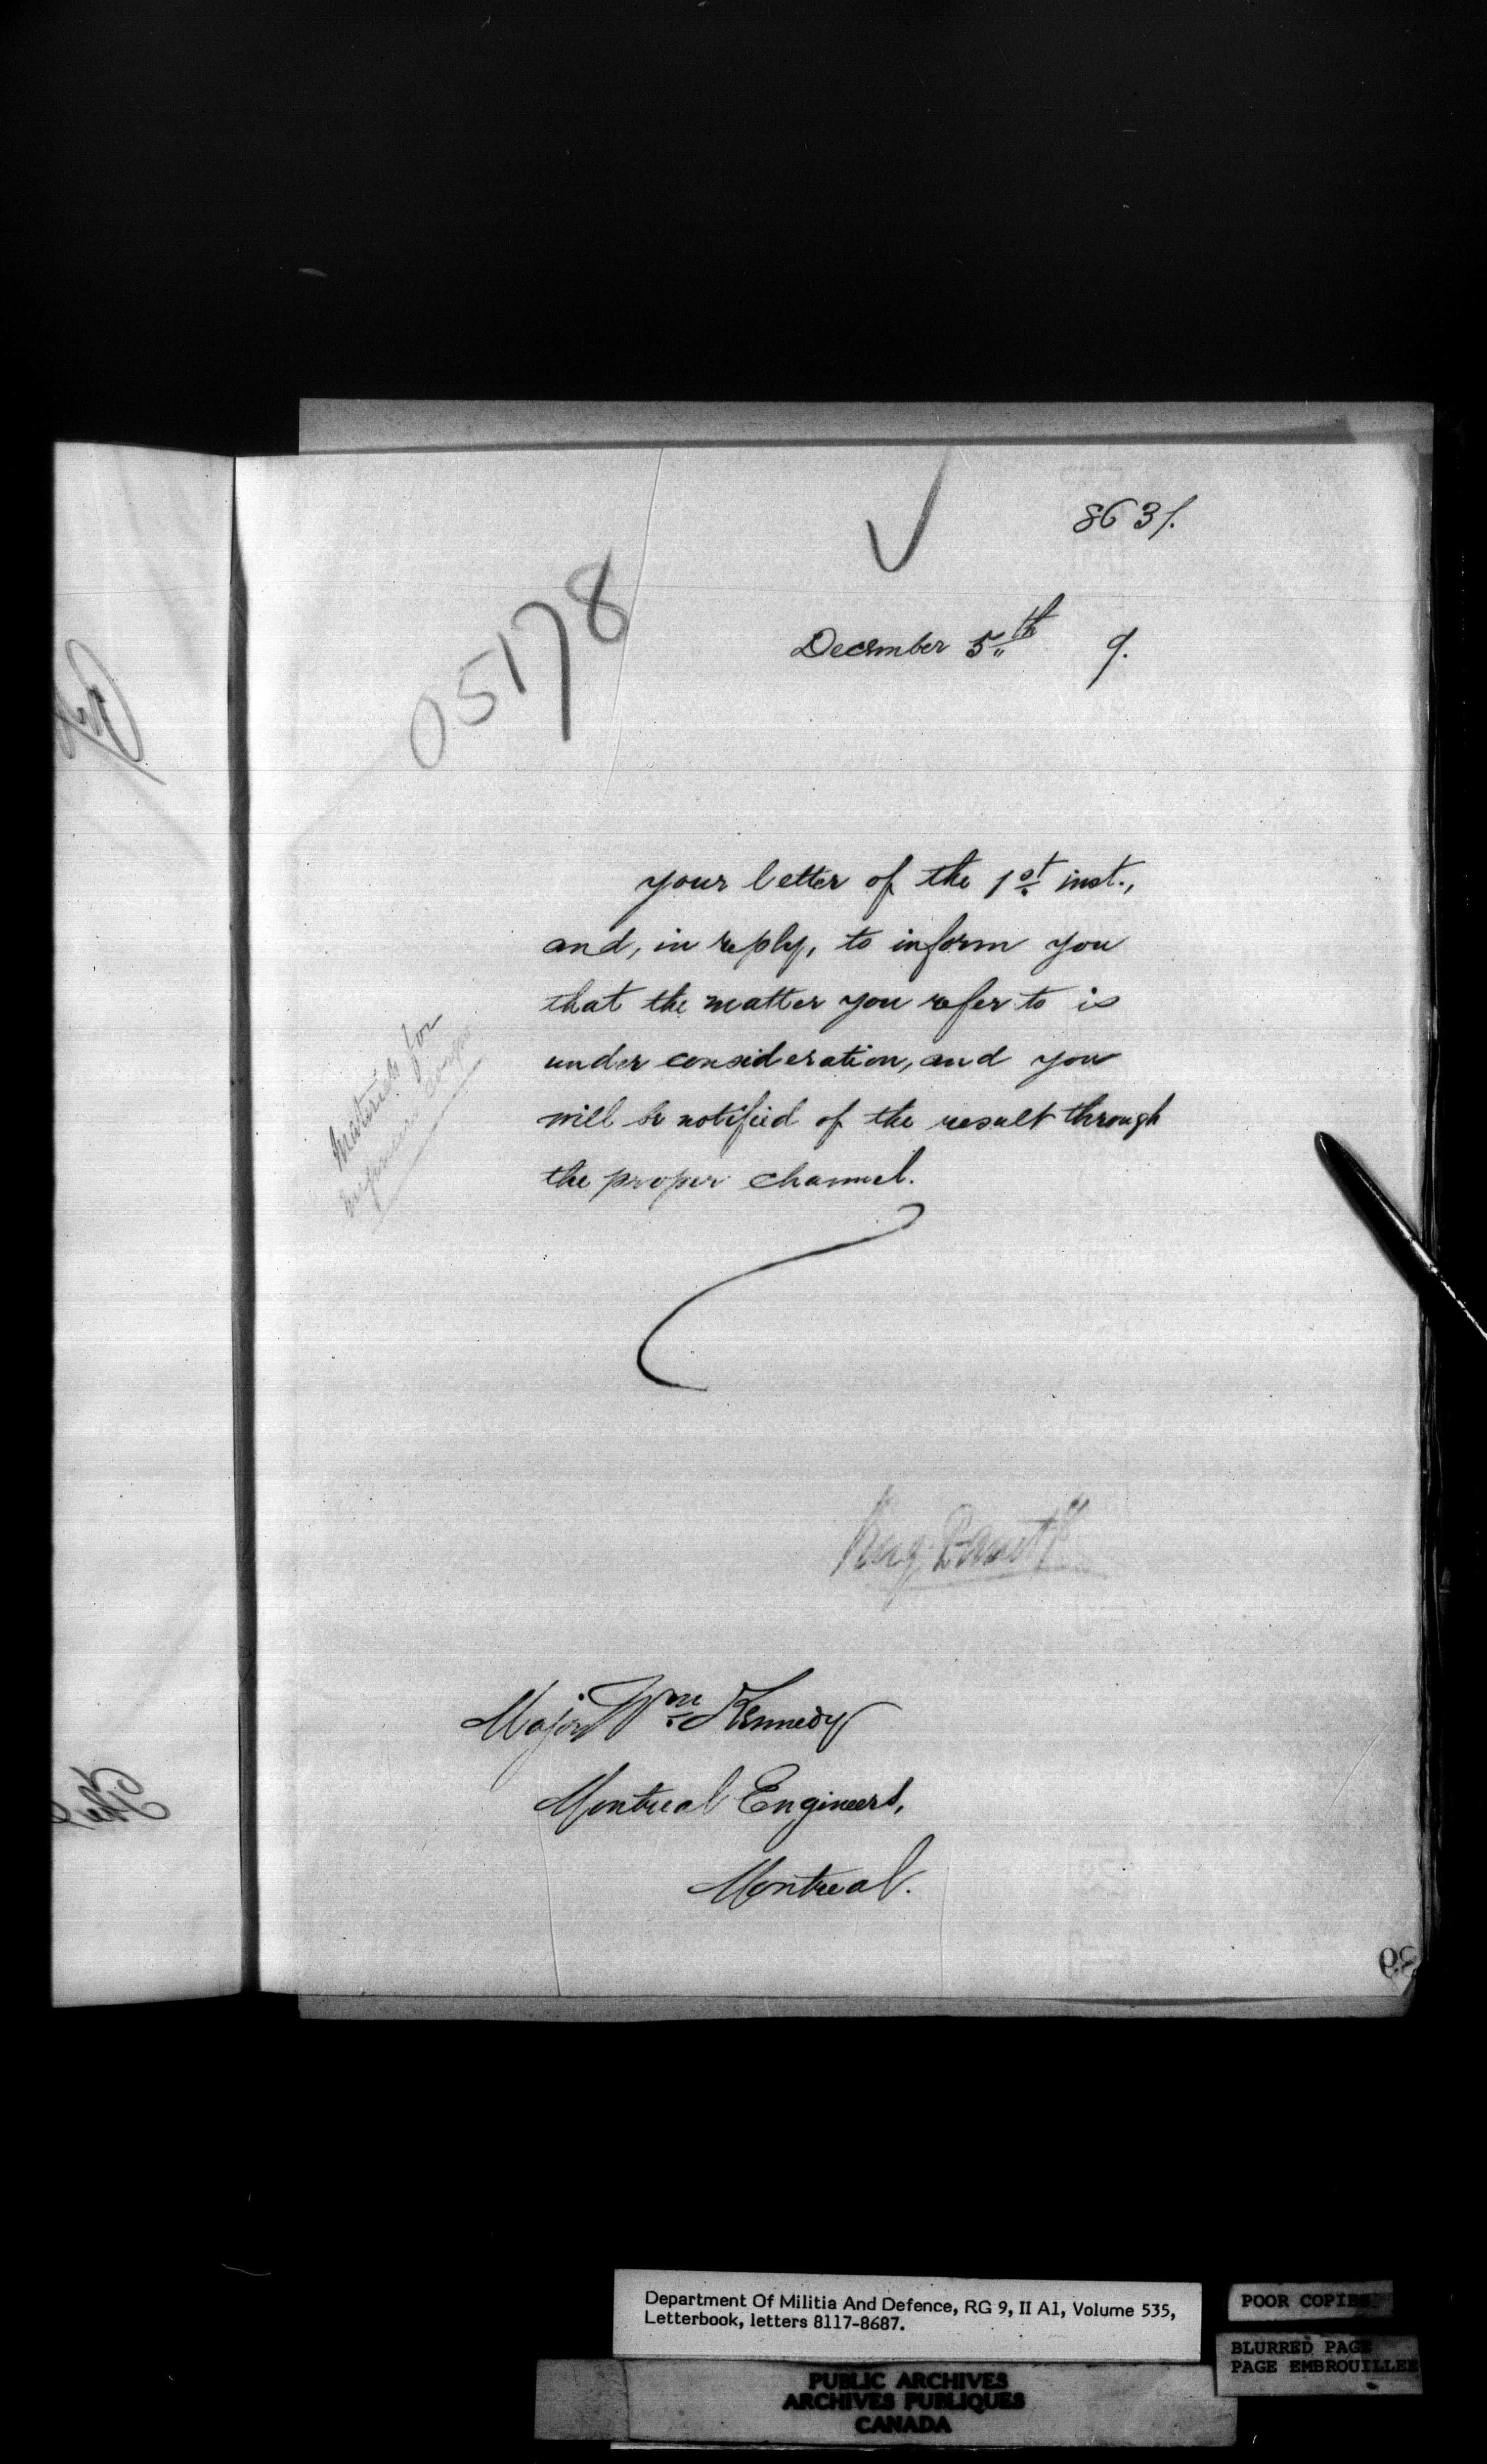 8631.
05178
December 5th 9.
your letter of the 1st inst.,
and, in reply, to inform you
that the matter you refer to is
under consideration, and you
will be notified of the result through
the proper channel.
Materials for
Major Wm Kennedy
Montreal Engineers,
Montreal.
Department Of Militia And Defence, RG 9, II A1, Volume 535,
Letterbook, letters 8117-8687.
POOR COPIES
BLURRED PAGE
PAGE EMBROUILLEE
PUBLIC ARCHIVES
ARCHIVES PUBLIQUES
CANADA